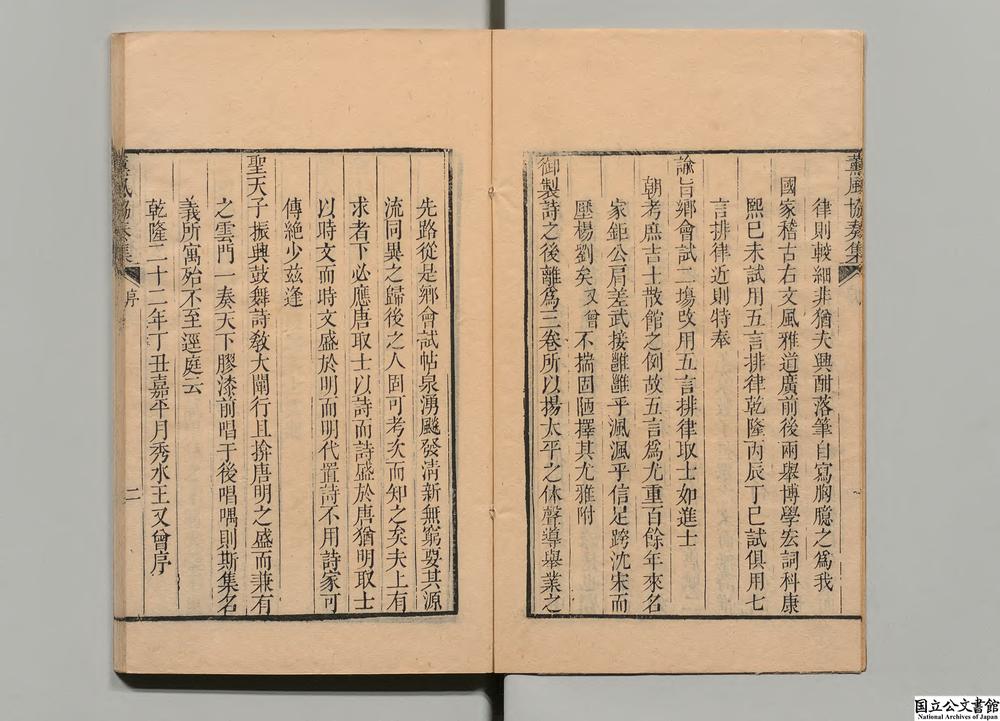 薰風協奏集
律則較細非猶夫興酣落筆自寫胸臆之爲我
國家稽古右文風雅道廣前後兩舉博學宏詞科康
熙己未試用五言排律乾隆丙辰丁巳試俱用七
言排律近則特奉
諭旨鄉會試二塲改用五言排律取士如進士
朝考庶吉士散館之例故五言爲尤重百餘年來名
家鉅公肩差武接雝雝乎渢渢乎信足跨沈宋而
壓楊劉矣又曾不揣固陋擇其尤雅附
御製詩之後離爲三卷所以揚太平之休聲導舉業之
先路從是鄉會試帖泉湧飈發清新無窮要其源
流同異之歸後之人固可考次而知之矣夫上有
求者下必應唐取士以詩而詩盛於唐猶明取士
以時文而時文盛於明而明代置詩不用詩家可
傳絶少兹逢
聖天子振興鼓舞詩敎大闡行且擀唐明之盛而兼有
之雲門一奏天下膠漆前唱于後唱喁則斯集名
義所寓殆不至逕庭云
乾隆二十二年丁丑嘉平月秀水王又曾序
薰風協奏集
序
二
国立公文書館
National Archives of Japan